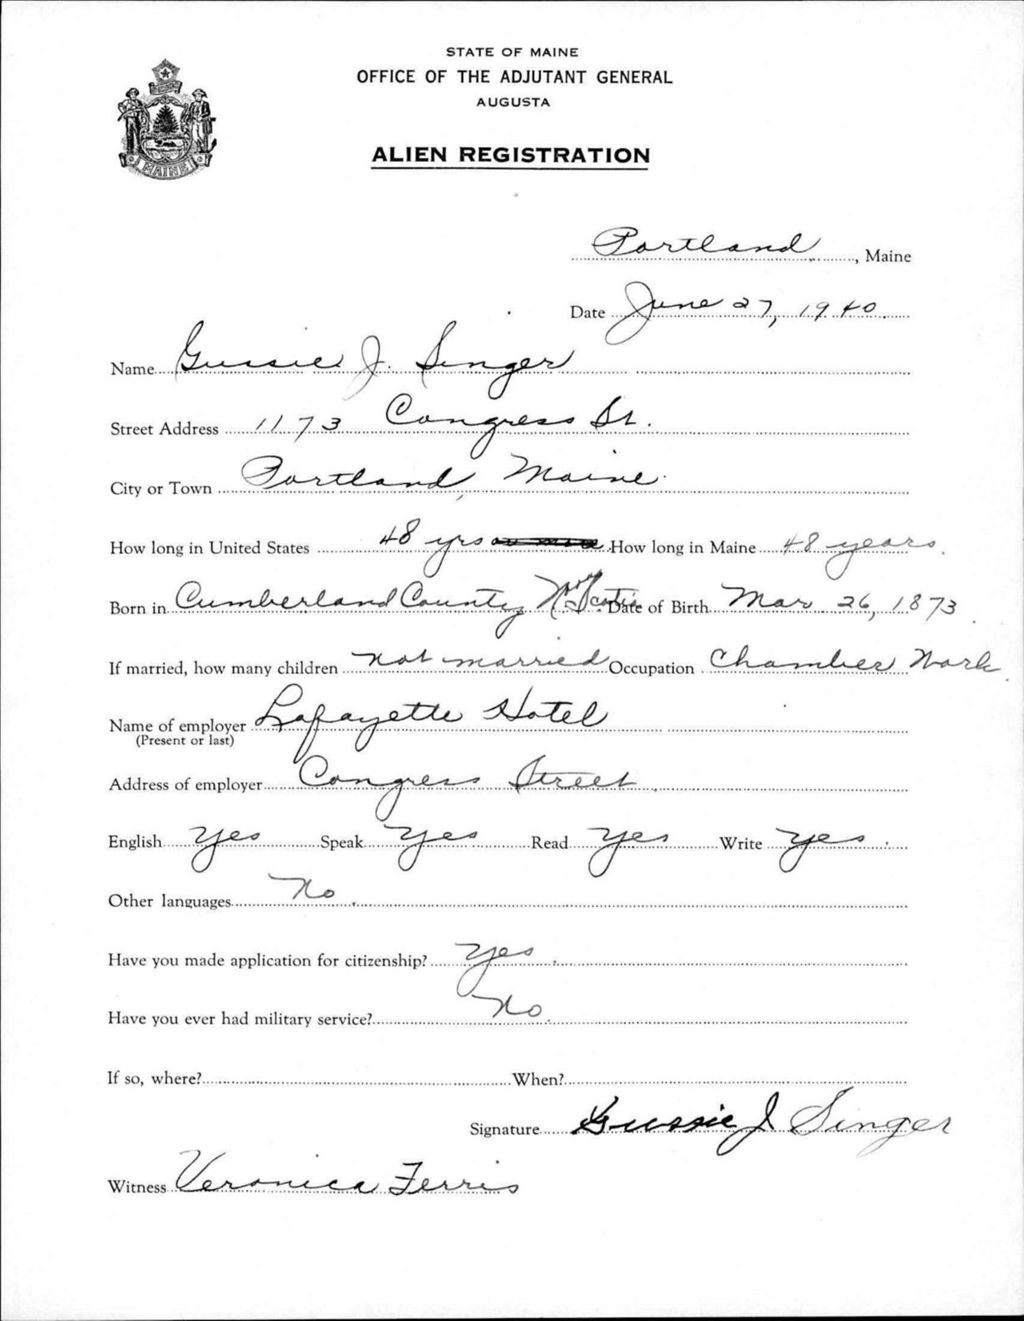 STATE OF MAINE
OFFICE OF THE ADJUTANT GENERAL
AUGUSTA
ALIEN REGISTRATION
MAINE
Portland, Maine
Date June 27, 1940
Name Gussie J. Singer
Street Address 1173 Congress St.
City or Town Portland, Maine
How long in United States 48 yrs How long in Maine 48 years.
Born in Cumberland County Nova Scotia Date of Birth Mar 26, 1873
If married, how many children not married Occupation Chamber Work
Name of employer Lafayette Hotel
(Present or last)
Address of employer Congress Street
English Yes Speak Yes Read Yes Write Yes
Other languages No
Have you made application for citizenship? Yes
Have you ever had military service? No
If so, where? When?
Signature Gussie J Singer
Witness Veronica Ferris